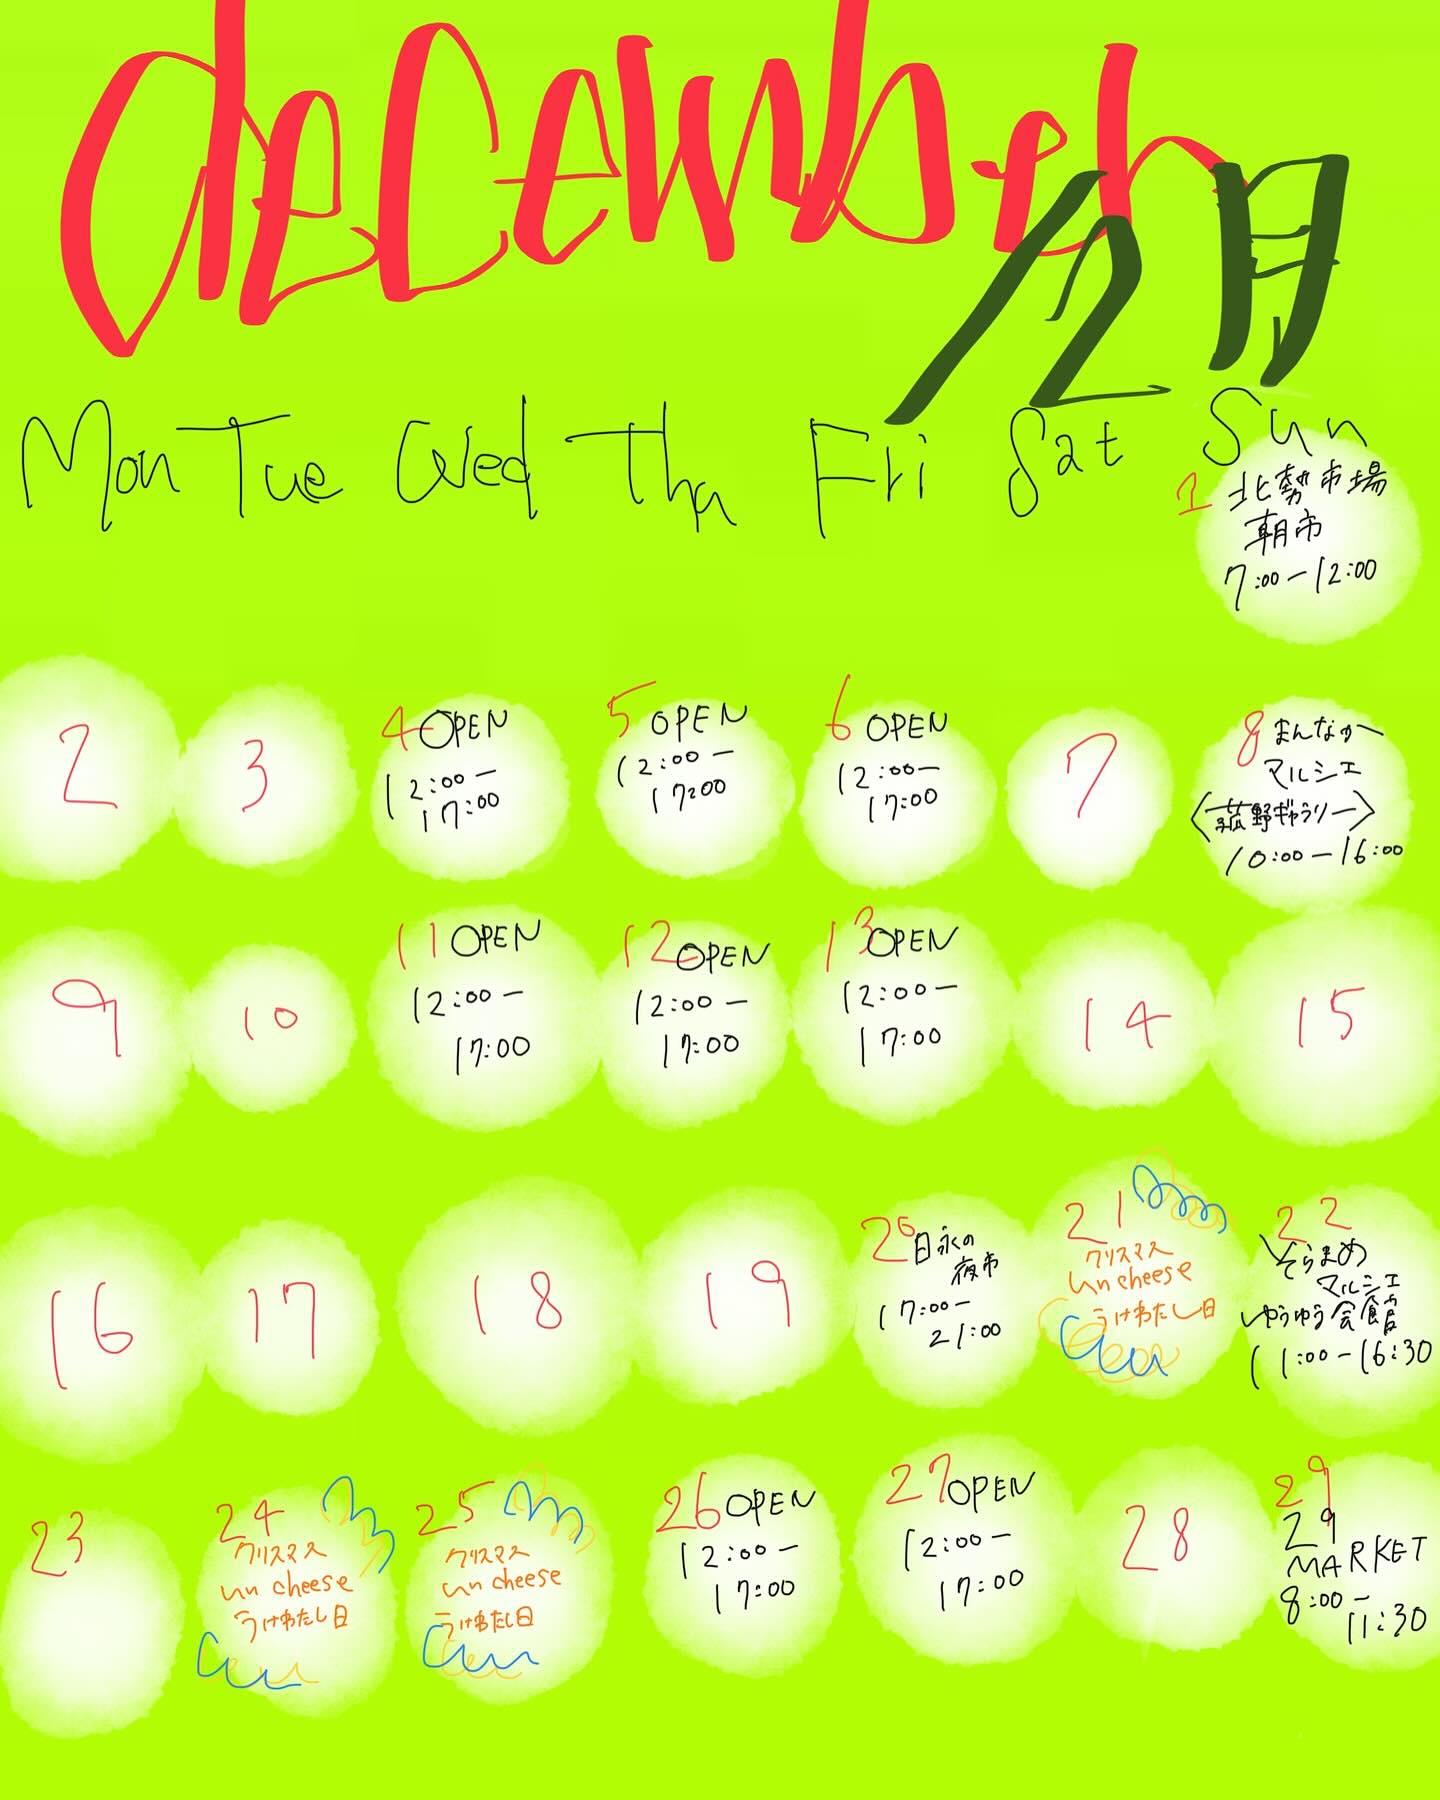 december
12月
Mon Tue Wed Thu Fri Sat Sun
1 北勢市場
朝市
7:00-12:00
2
3
4 OPEN
12:00-
17:00
5 OPEN
12:00-
17:00
6 OPEN
12:00-
17:00
7
8 まんなかー
マルシェ
<菰野ギャラリー>
10:00-16:00
9
10
11 OPEN
12:00-
17:00
12 OPEN
12:00-
17:00
13 OPEN
12:00-
17:00
14
15
16
17
18
19
20 日永の
夜市
17:00-
21:00
21
クリスマス
un cheese
うけわたし日
22
そらまめ
マルシェ
ゆうゆう会館
11:00-16:30
23
24
クリスマス
un cheese
うけわたし日
25
クリスマス
un cheese
うけわたし日
26 OPEN
12:00-
17:00
27 OPEN
12:00-
17:00
28
29
29
MARKET
8:00-
11:30